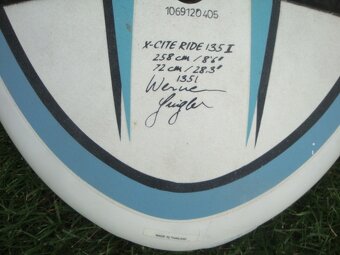 1069120405
X-CITE RIDE 135 II
258 cm / 8'6"
72 cm / 28.3"
135 l
Werner
Gnigler
MADE IN THAILAND